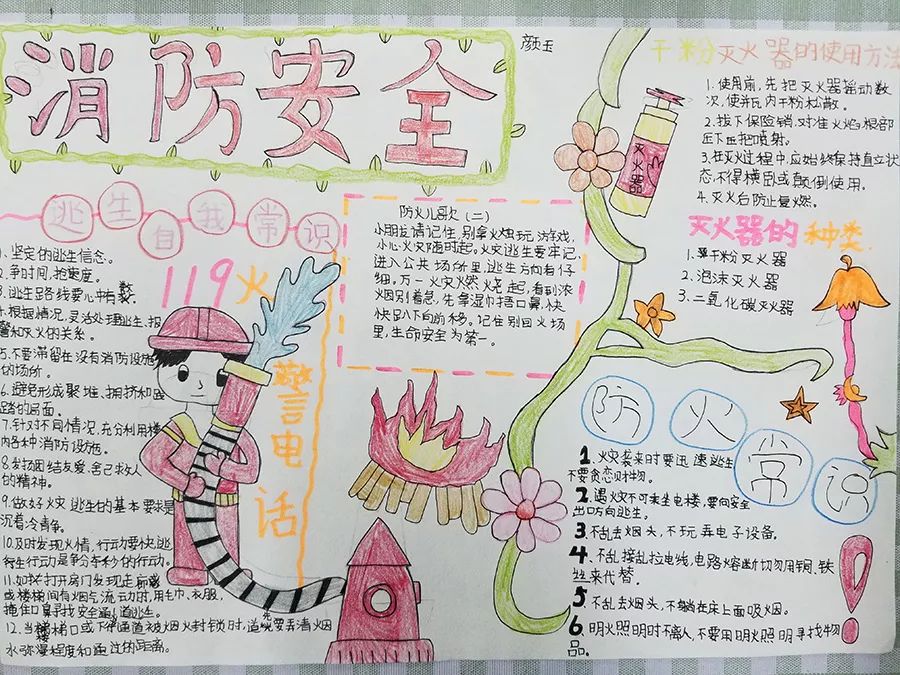 消防安全
颜玉
逃生自我常识
1.坚定的逃生信念。
2.争时间,抢速度。
3.逃生路线要心中有数
4.根据情况,灵活处理逃生,报
警和灭火的关系。
5.不要滞留在没有消防设施
的场所。
6.避免形成聚堆、拥挤和踩
踏的局面。
7.针对不同情况,充分利用楼
内各种消防设施。
8.发扬团结友爱,舍己救人
的精神。
9.做好火灾逃生的基本要求是
沉着冷静。
10.及时发现火情,行动要快,逃
生行动是争分夺秒的行动。
11.如果打开房门发现走廊
或楼梯间有烟气流动时,用毛巾、衣服
掩住口鼻寻找安全通道逃生。
12.当楼梯口或下行通道被烟火封锁时,造要弄清烟
火弥漫程度和通过的距离。
119火
警电话
防火儿歌(二)
小朋友请记住,别拿火烛玩游戏,
小心火灾随时起。火灾逃生要牢记
进入公共场所里,逃生方向看仔
细,万一火灾燃烧起,看到浓
烟别着急,先拿湿巾捂口鼻,快
快趴下向前移。记住别回火场
里,生命安全为第一。
干粉灭火器的使用方法
1.使用前,先把灭火器摇动数
次,使瓶内干粉松散。
2.拔下保险销,对准火焰根部
压下压把喷射。
3.在灭火过程中,应始终保持直立状
态,不得横卧或颠倒使用。
4.灭火后防止复燃。
灭火器
灭火器的种类.
1.干粉灭火器
2.泡沫灭火器
3.二氧化碳灭火器
防火常识
1.火灾袭来时要迅速逃生
不要贪恋财物。
2.遇火灾不可乘坐电梯,要向安全
出口方向逃生。
3.不乱丢烟头,不玩弄电子设备。
4.不乱接乱拉电线,电路熔断切勿用铜、铁
丝来代替。
5.不乱丢烟头,不躺在床上面吸烟。
6.明火照明时不离人,不要用明火照明寻找物
品。